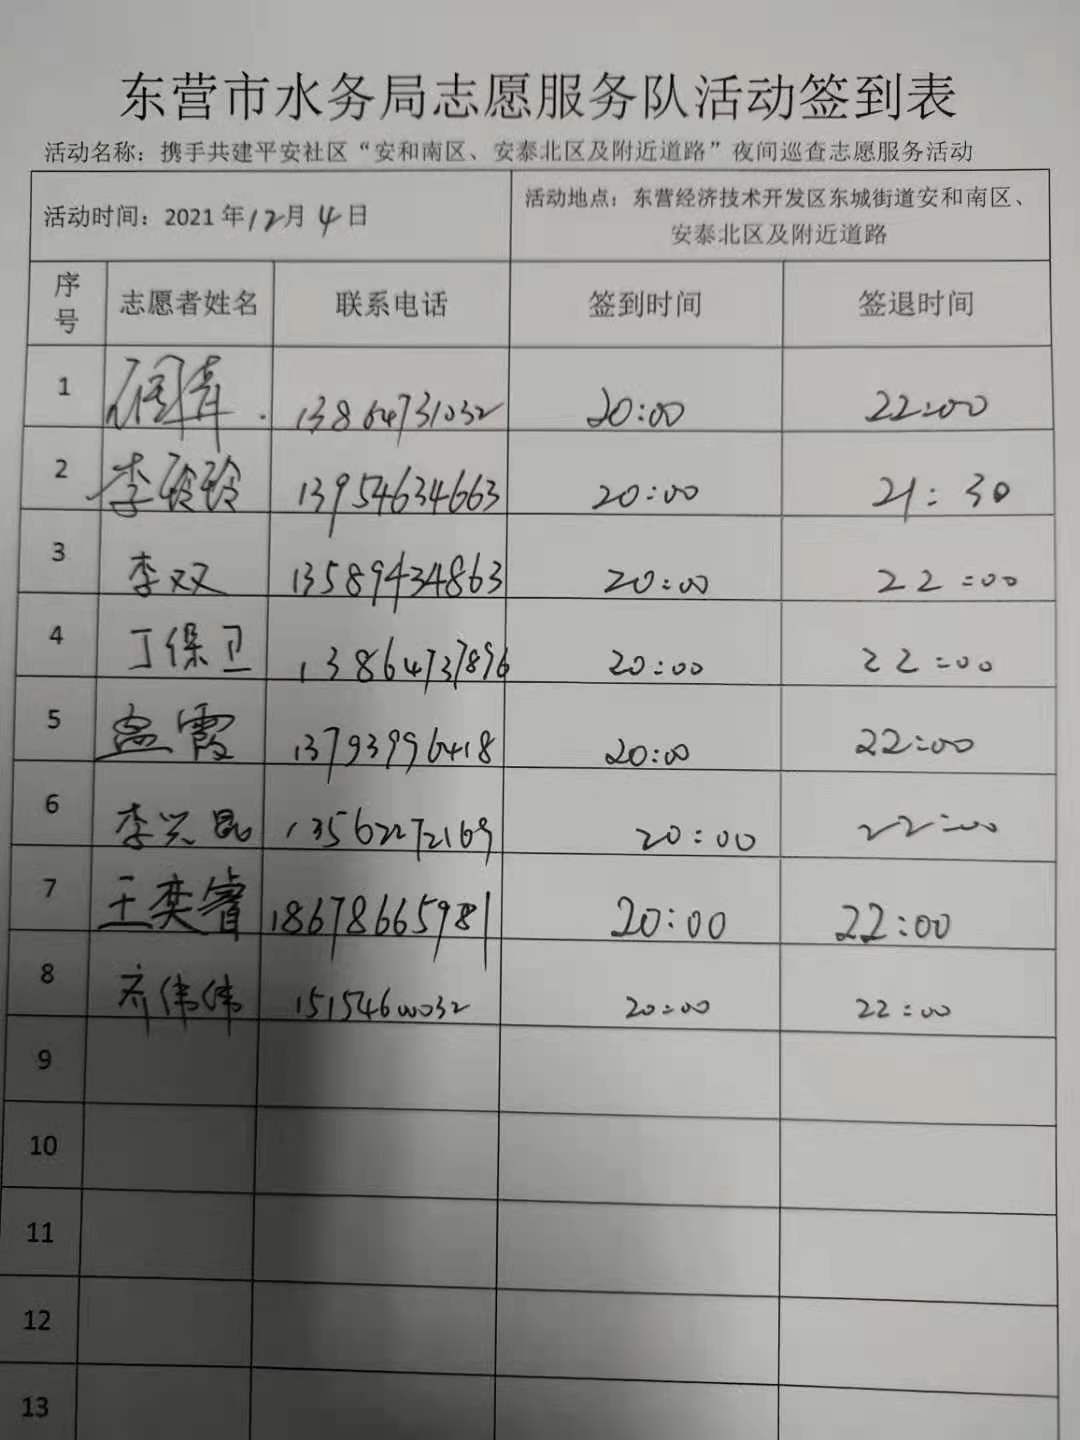 东营市水务局志愿服务队活动签到表
活动名称：携手共建平安社区“安和南区、安泰北区及附近道路”夜间巡查志愿服务活动
活动时间：2021年12月4日 活动地点：东营经济技术开发区东城街道安和南区、
安泰北区及附近道路
序号 志愿者姓名 联系电话 签到时间 签退时间
1 周青 13864731032 20:00 22:00
2 李玲玲 13954634663 20:00 21:30
3 李双 13589434863 20:00 22:00
4 丁保卫 13864737896 20:00 22:00
5 孟霞 13793996418 20:00 22:00
6 李兴昆 13562272169 20:00 22:00
7 王奕睿 18678665981 20:00 22:00
8 乔伟伟 15154600032 20:00 22:00
9
10
11
12
13